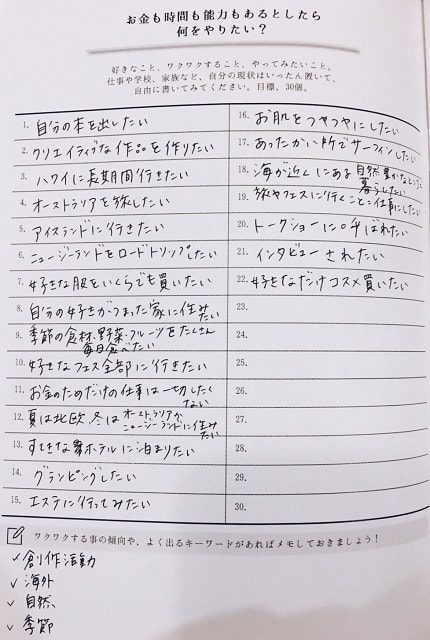 お金も時間も能力もあるとしたら
何をやりたい？
好きなこと、ワクワクすること、やってみたいこと。
仕事や学校、家族など、自分の現状はいったん置いて、
自由に書いてみてください。目標、30個。
1. 自分の本を出したい
2. クリエイティブな作品を作りたい
3. ハワイに長期間行きたい
4. オーストラリアを旅したい
5. アイスランドに行きたい
6. ニュージーランドをロードトリップしたい
7. 好きな服をいくらでも買いたい
8. 自分の好きがつまった家に住みたい
9. 季節の食材・野菜・フルーツをたくさん
毎日食べたい
10. 好きなフェス全部に行きたい
11. お金のためだけの仕事は一切したく
ない
12. 夏は北欧、冬はオーストラリアか
ニュージーランドに住み
たい
13. すてきなホテルに泊まりたい
14. グランピングしたい
15. エステに行ってみたい
16. お肌をつやつやにしたい
17. あったかい所でサーフィンしたい
18. 海が近くにある自然豊かなところで
暮らしたい
19. 旅やフェスに行くことを仕事にしたい
20. トークショーに呼ばれたい
21. インタビューされたい
22. 好きなだけコスメ買いたい
23.
24.
25.
26.
27.
28.
29.
30.
ワクワクする事の傾向や、よく出るキーワードがあればメモしておきましょう！
✓創作活動
✓海外
✓自然
✓季節